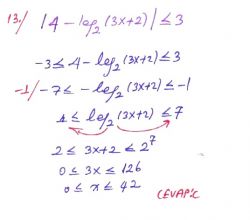 13.) |4 - log₂(3x+2)| ≤ 3
-3 ≤ 4 - log₂(3x+2) ≤ 3
-1/ -7 ≤ -log₂(3x+2) ≤ -1
1 ≤ log₂(3x+2) ≤ 7
2 ≤ 3x+2 ≤ 2⁷
0 ≤ 3x ≤ 126
0 ≤ x ≤ 42
CEVAP: C